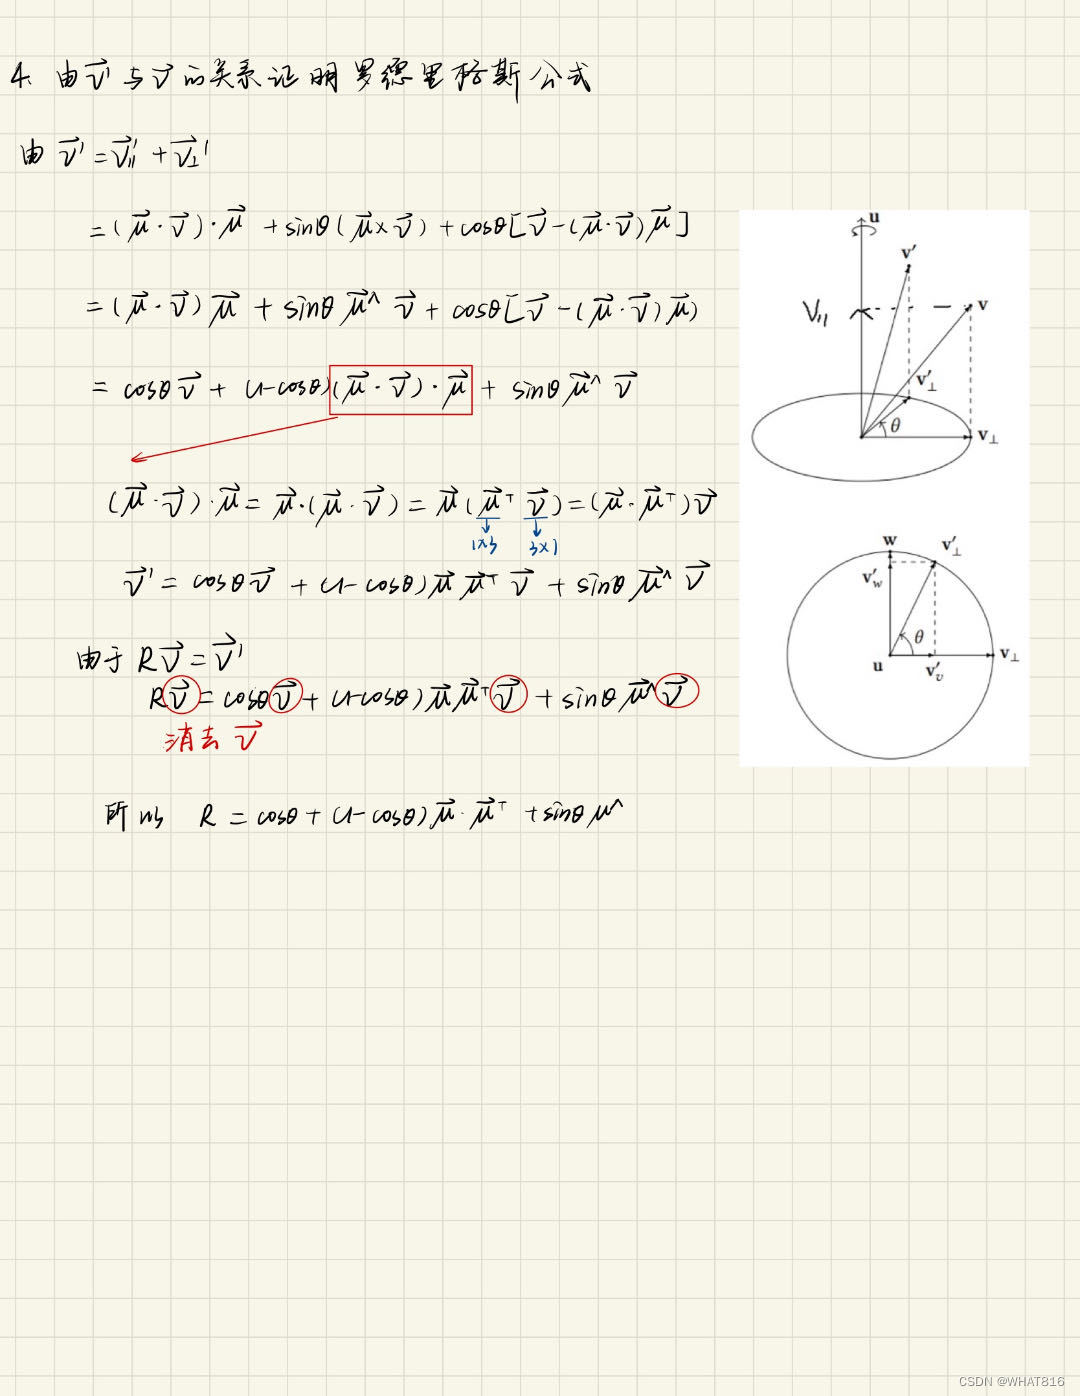 4. 由v⃗'与v⃗的关系证明罗德里格斯公式
由 v⃗' = v⃗∥' + v⃗⊥'
= (μ⃗·v⃗)·μ⃗ + sinθ(μ⃗×v⃗) + cosθ[v⃗-(μ⃗·v⃗)μ⃗]
= (μ⃗·v⃗)μ⃗ + sinθ μ⃗^ v⃗ + cosθ[v⃗-(μ⃗·v⃗)μ⃗)
= cosθ v⃗ + (1-cosθ)(μ⃗·v⃗)·μ⃗ + sinθ μ⃗^ v⃗
(μ⃗·v⃗)·μ⃗ = μ⃗·(μ⃗·v⃗) = μ⃗(μ⃗ᵀ v⃗) = (μ⃗·μ⃗ᵀ)v⃗
1×3 3×1
v⃗' = cosθ v⃗ + (1-cosθ)μ⃗ μ⃗ᵀ v⃗ + sinθ μ⃗^ v⃗
由于 Rv⃗ = v⃗'
Rv⃗ = cosθ v⃗ + (1-cosθ)μ⃗ μ⃗ᵀ v⃗ + sinθ μ⃗^ v⃗
消去 v⃗
所以 R = cosθ + (1-cosθ)μ⃗·μ⃗ᵀ + sinθ μ^
u
v′
V∥
v
v′⊥
θ
v⊥
w
v′⊥
v′w
θ
u
v′v
v⊥
CSDN @WHAT816